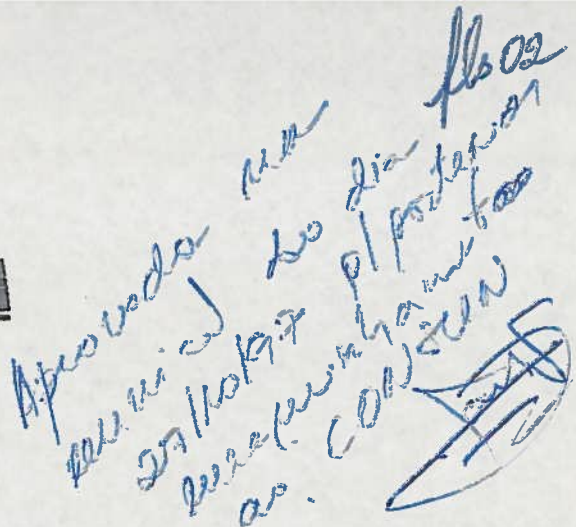 fls 02
Aprovada na
reunião do dia
27/10/97 p/ posterior
encaminhamento
ao CONSUN